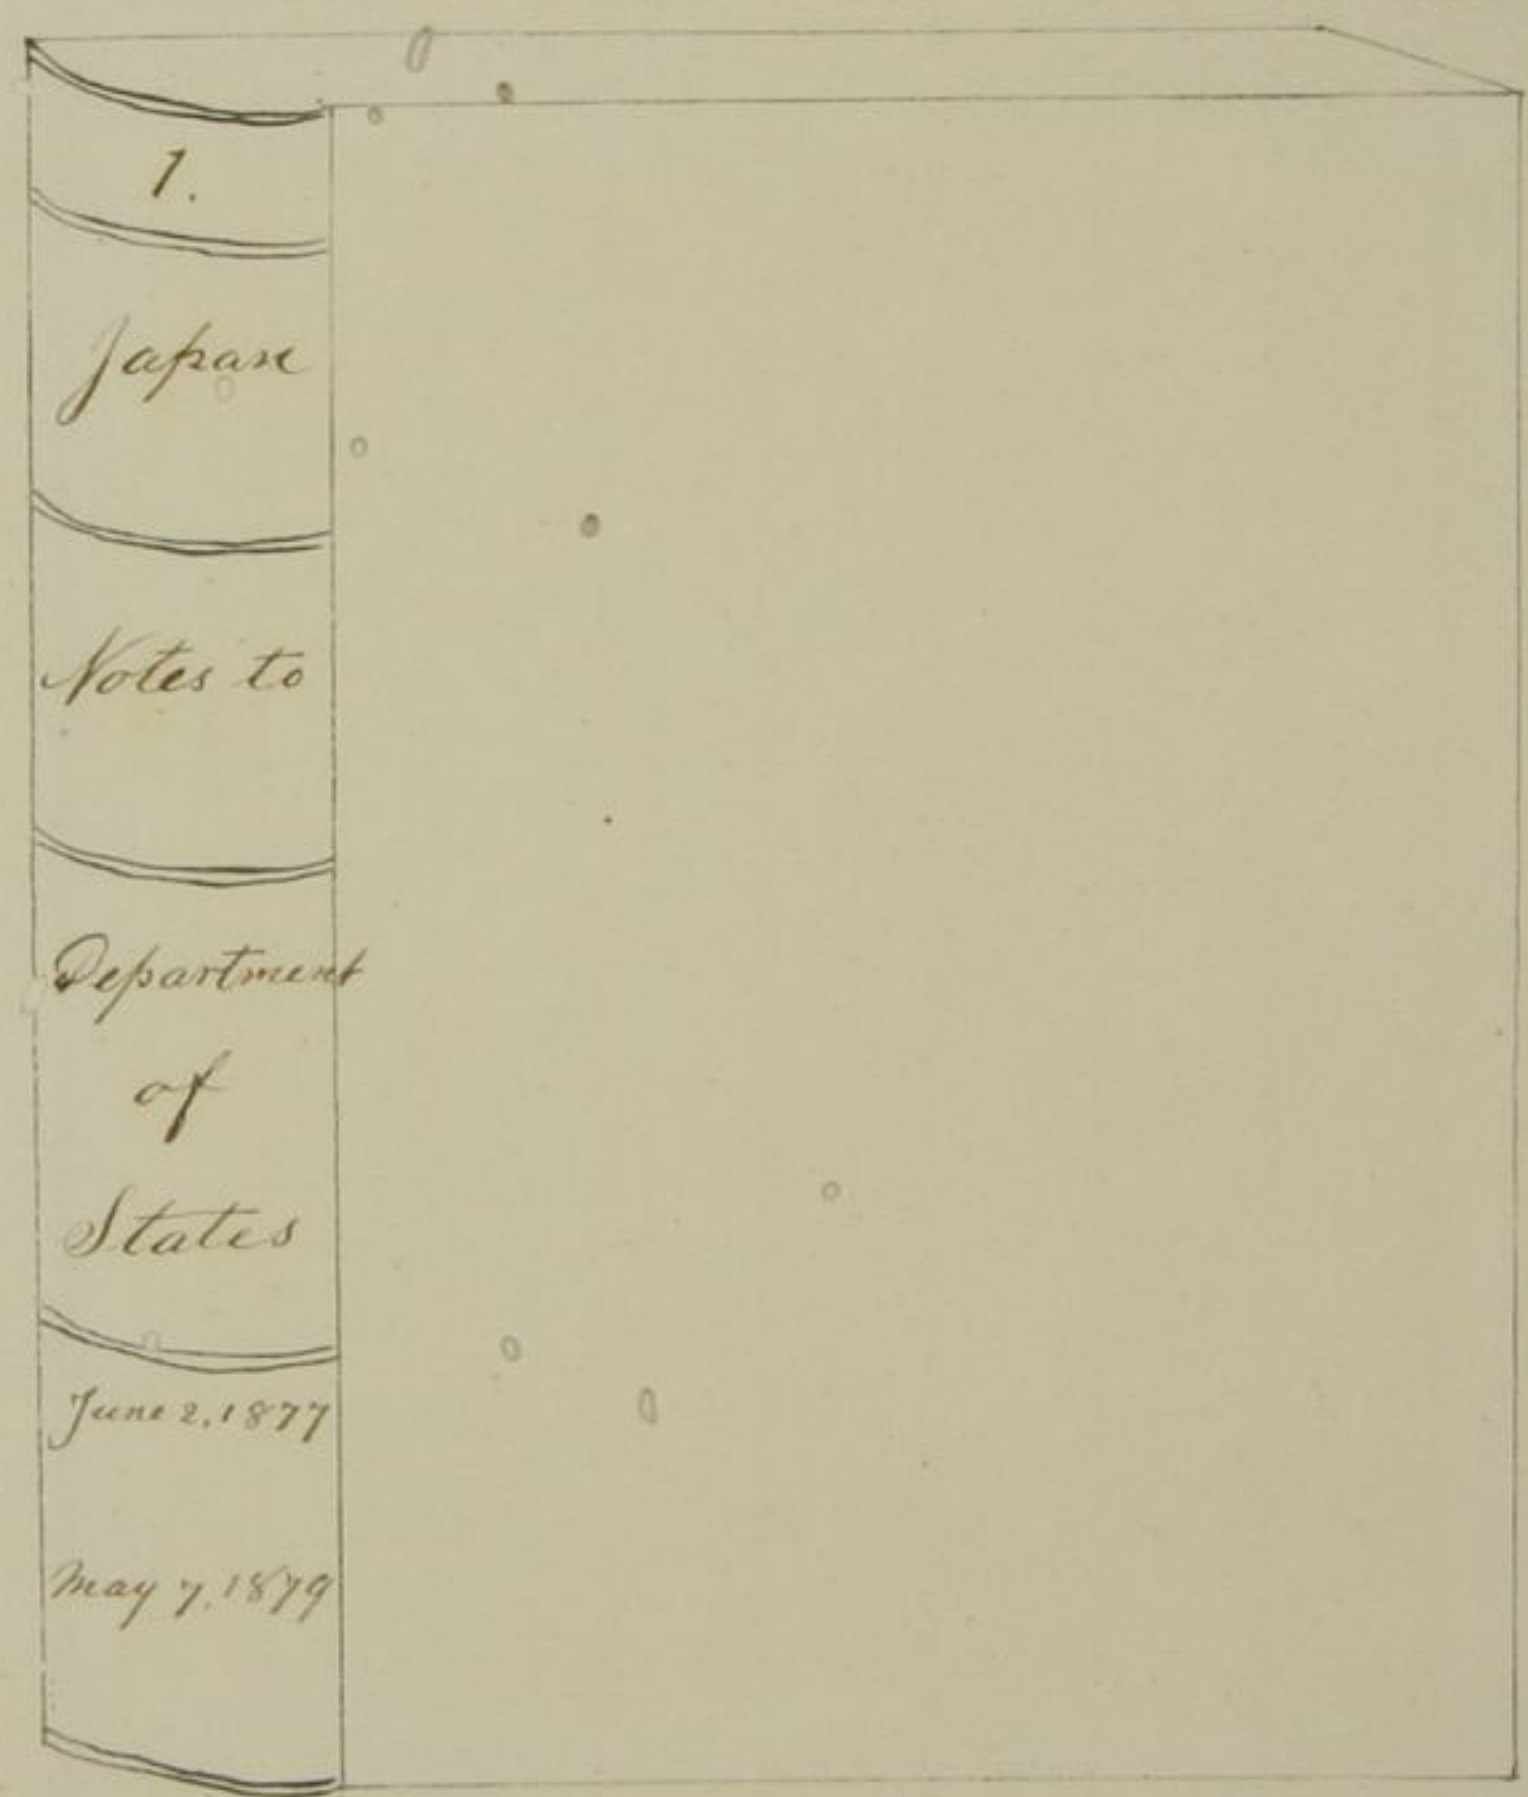 1.
Japan
Notes to
Department
of
States
June 2, 1877
May 7, 1879